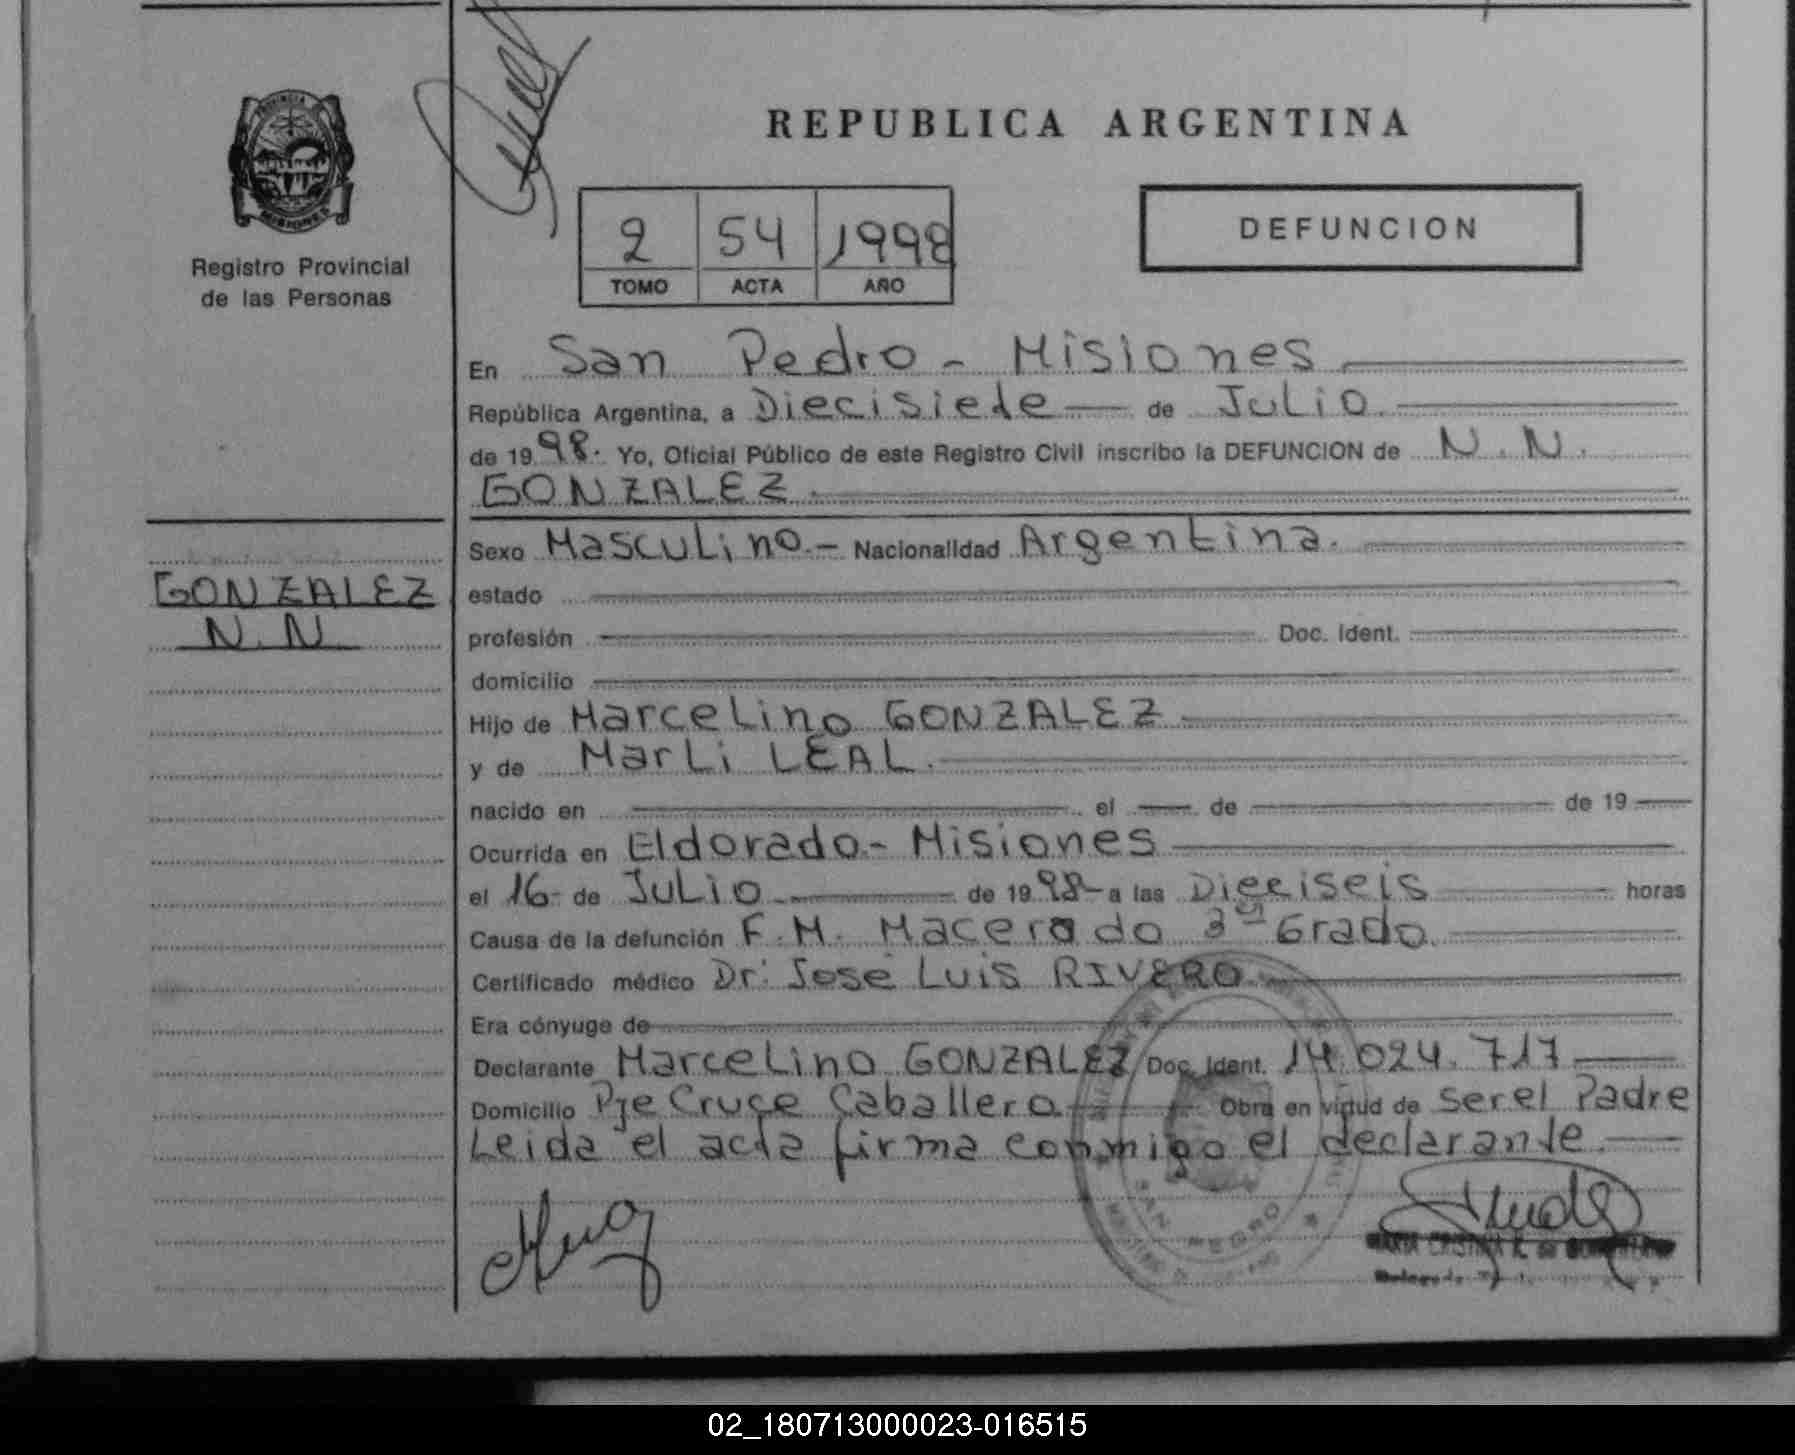 REPUBLICA ARGENTINA
PROVINCIA
MISIONES
Registro Provincial
de las Personas
2 54 1998
TOMO ACTA AÑO
DEFUNCION
En San Pedro - Misiones
República Argentina, a Diecisiete de Julio
de 1998. Yo, Oficial Público de este Registro Civil inscribo la DEFUNCION de N.N.
GONZALEZ
GONZALEZ
N.N
Sexo Masculino.- Nacionalidad Argentina.
estado
profesión Doc. Ident.
domicilio
Hijo de Marcelino GONZALEZ
y de Marli LEAL.
nacido en el de de 19
Ocurrida en Eldorado.- Misiones
el 16- de Julio de 1998- a las Dieciseis horas
Causa de la defunción F.M. Macerado 3er Grado.
Certificado médico Dr: José Luis RIVERO.
Era cónyuge de
Declarante Marcelino GONZALEZ Doc. Ident. 14.024.717
Domicilio Pje Cruce Caballero Obra en virtud de ser el Padre
Leida el acta firma conmigo el declarante.
SAN PEDRO
MARIA CRISTINA R. de
02_180713000023-016515